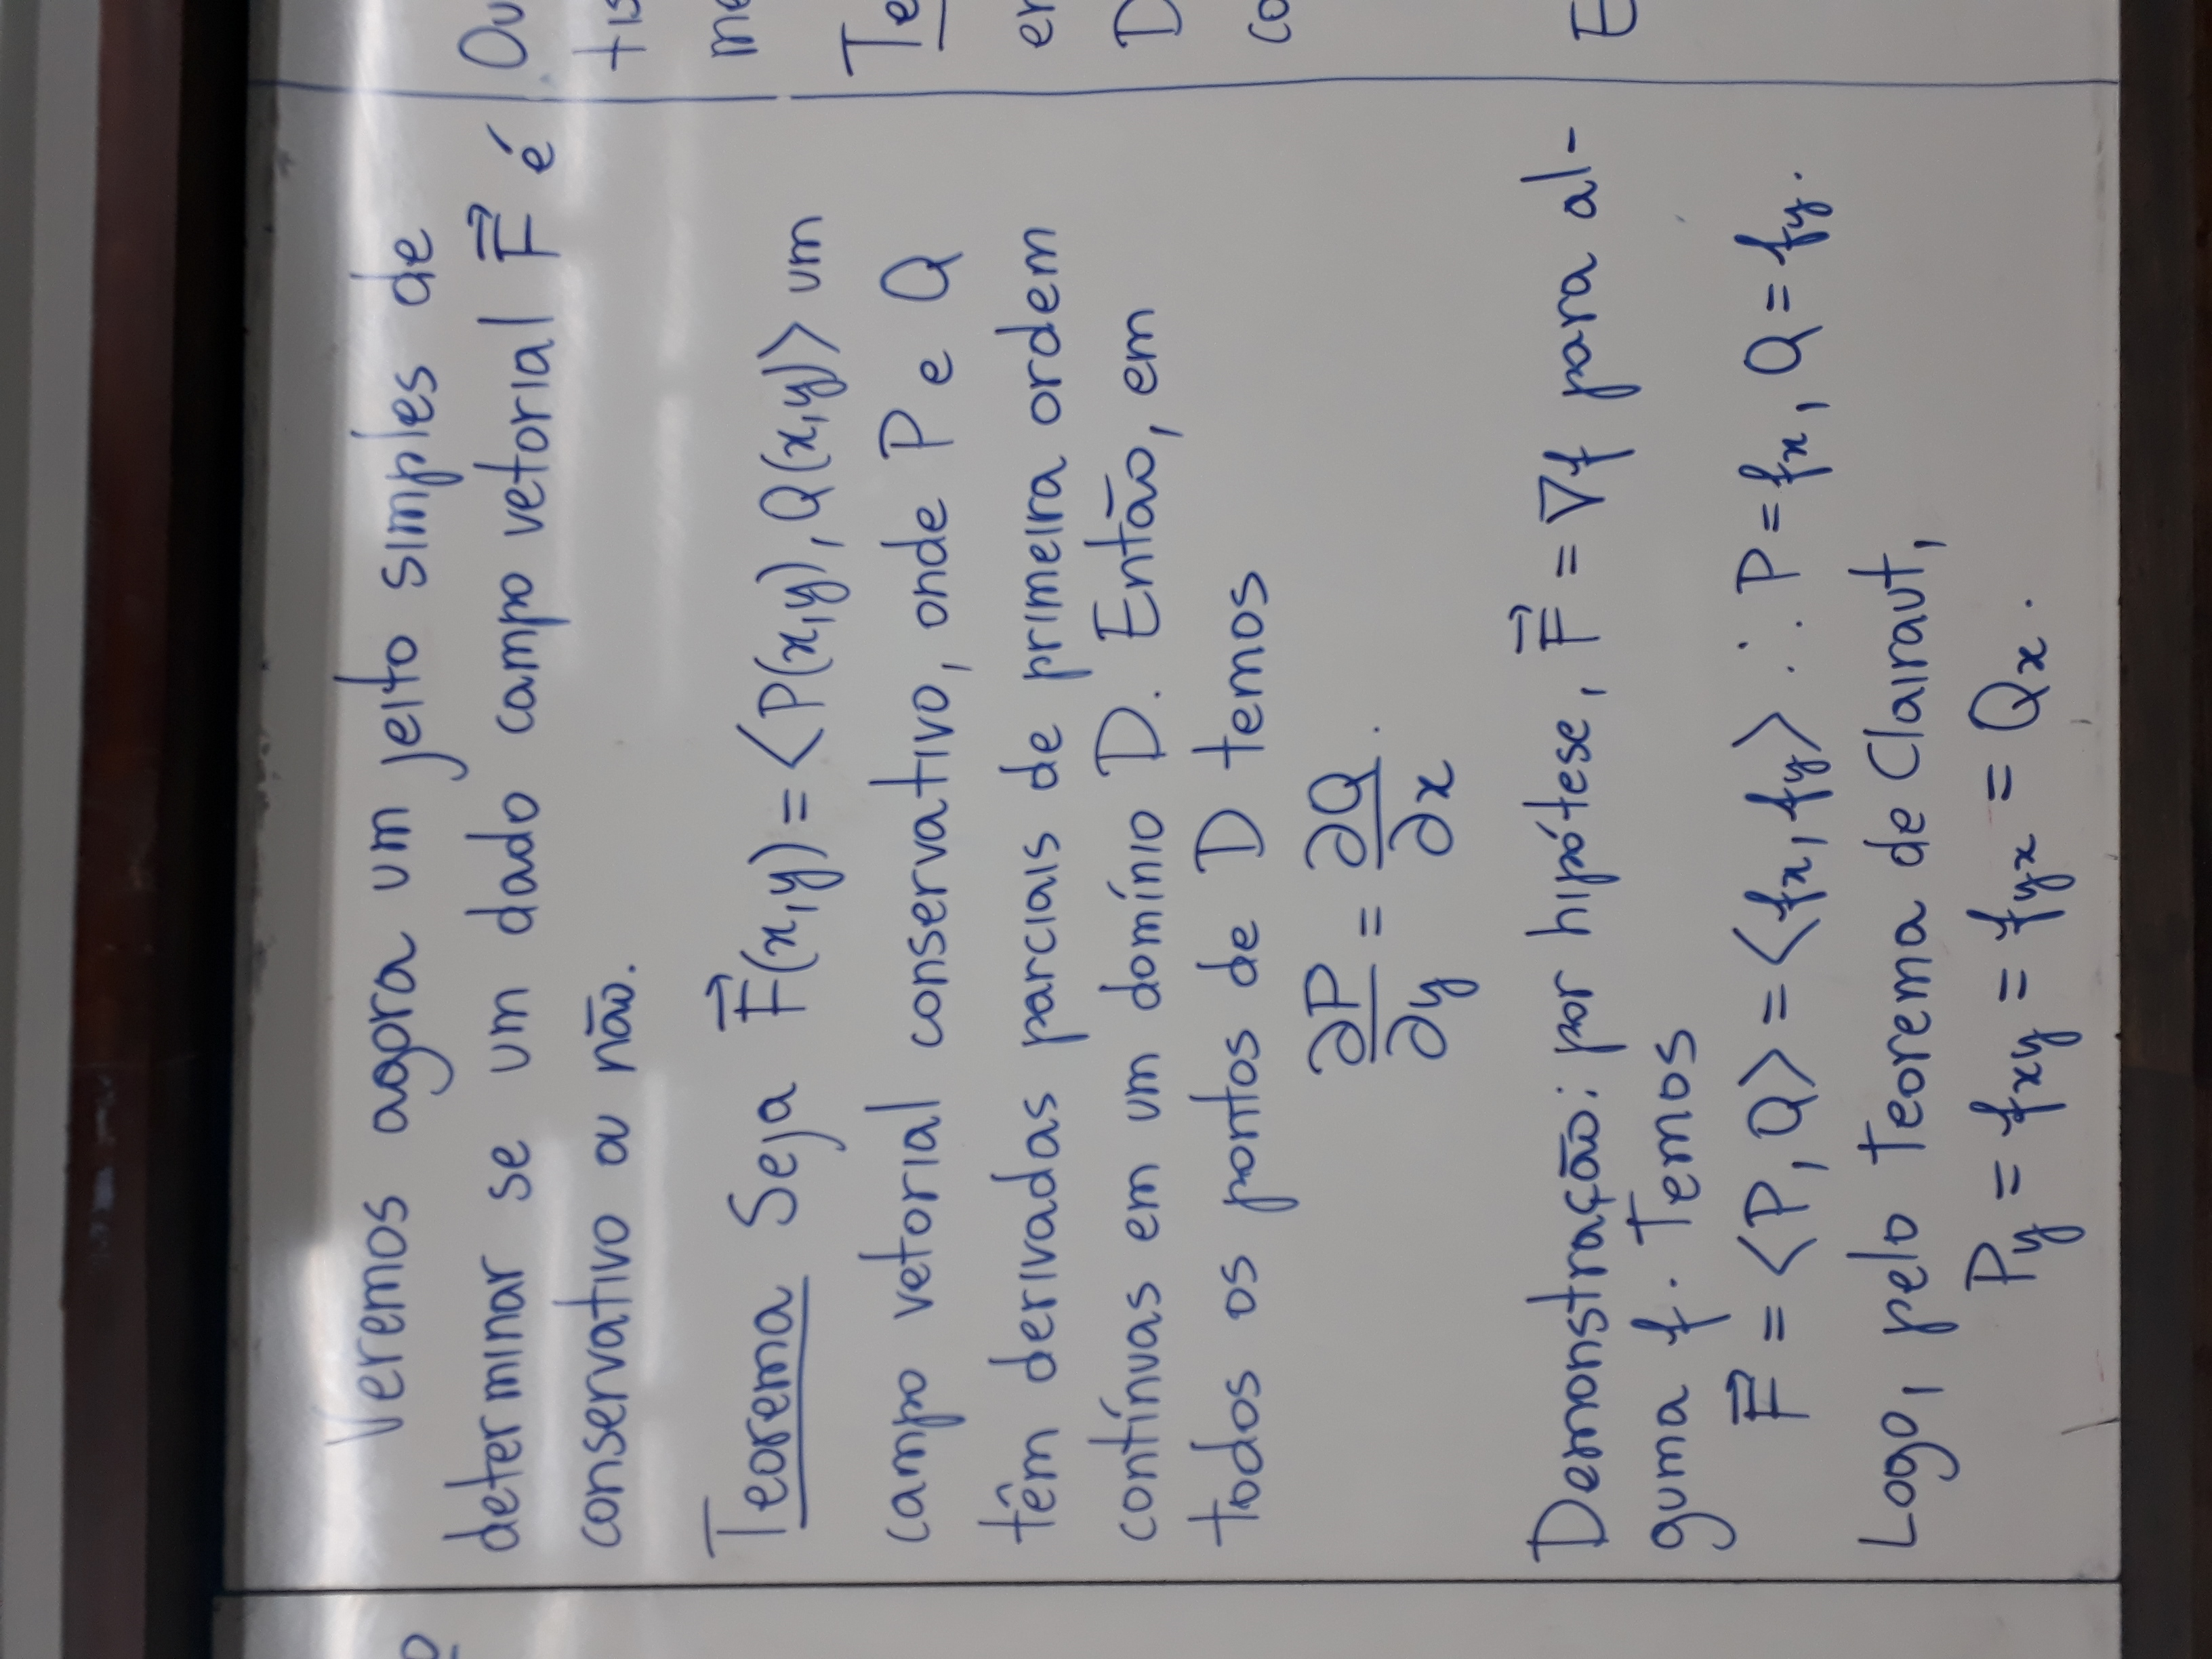 Veremos agora um jeito simples de
determinar se um dado campo vetorial F⃗ é
conservativo ou não.
Teorema Seja F⃗(x,y) = ⟨P(x,y), Q(x,y)⟩ um
campo vetorial conservativo, onde P e Q
têm derivadas parciais de primeira ordem
contínuas em um domínio D. Então, em
todos os pontos de D temos
∂P/∂y = ∂Q/∂x.
Demonstração: por hipótese, F⃗ = ∇f para al-
guma f. Temos
F⃗ = ⟨P, Q⟩ = ⟨fx, fy⟩ ∴ P = fx, Q = fy.
Logo, pelo Teorema de Clairaut,
Py = fxy = fyx = Qx.
Ou
tis
me
Te
er
D
co
E